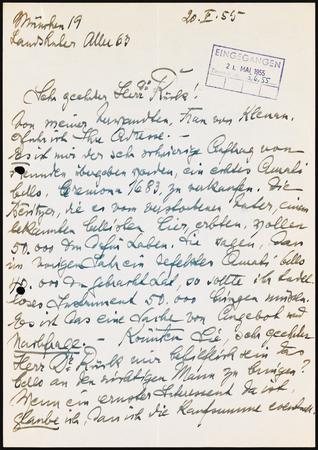 München 19
Landshuter Allee 63
20. V. 55
EINGEGANGEN
21. MAI 1955
3.6.55
Sehr geehrter Herr Dr. Rück!
Von meiner Verwandten, Frau von
erfuhr ich Ihre Adresse. –
Es ist mir der sehr schwierige Auftrag von
Freunden übergeben worden, ein echtes Amati
Cello, Cremona 1683, zu verkaufen. Die
Besitzer, die es vom verstorbenen Vater, einem
bekannten Cellisten hier, erbten, wollen
50.000 Dm dafür haben. Sie sagen, dass
im vorigen Jahr ein defektes Amati Cello
000 Dm gebracht hat, so sollte ihr tadel-
loses Instrument 50.000 bringen müssen.
Es ist das eine Sache von Angebot und
Nachfrage. – Könnten Sie, sehr geehrter
Herr Dr. Rück mir behilflich sein das
Cello an den richtigen Mann zu bringen?
Wenn ein ernster Interessent da ist,
glaube ich, dass ich die Kaufsumme